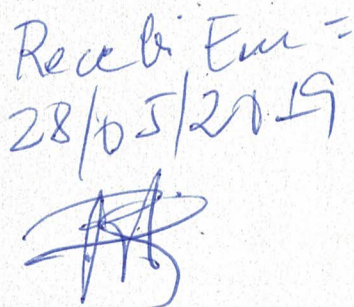 Recebi Em =
28/05/2019